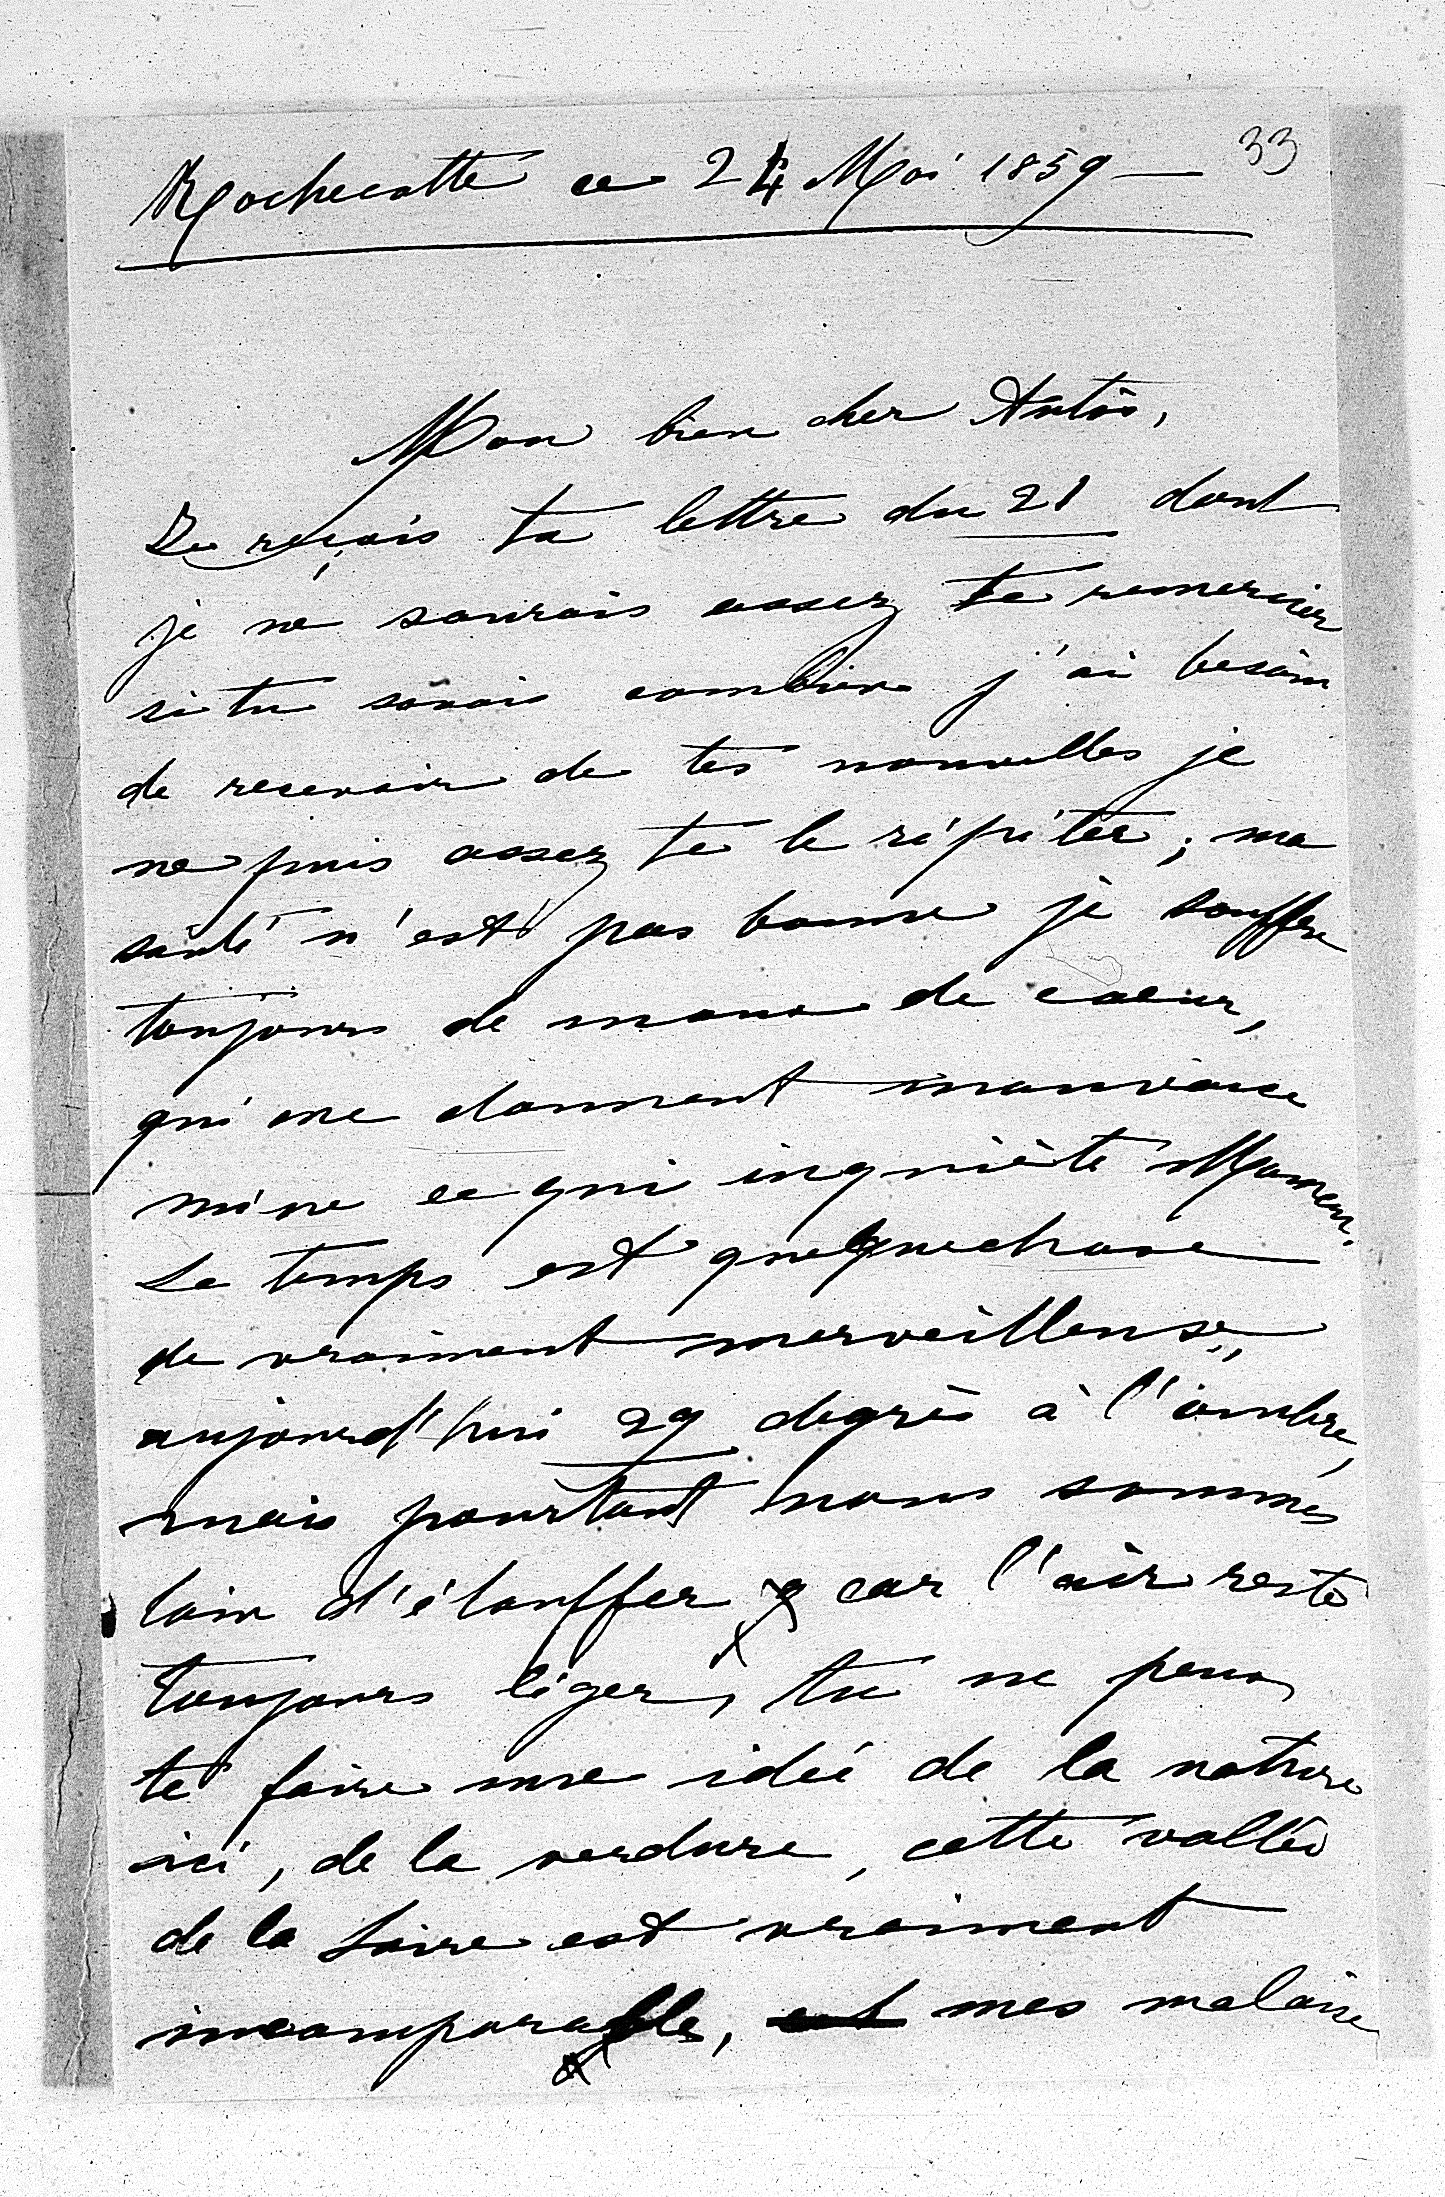 33
Rochecotte ce 24 Mai 1859 —
Mon bien cher Antôn,
Je reçois ta lettre du 21 dont
je ne saurais assez te remercier
si tu savais combien j'ai besoin
de recevoir de tes nouvelles je
ne puis assez te le répéter ; ma
santé n'est pas bonne je souffre
toujours de maux de coeur,
qui me donnent mauvaise
mine ce qui inquiète Maman.
Le temps est quelquechose
de vraiment merveilleuse,
aujourd'hui 29 degrès à l'ombre,
mais pourtant nous sommes
loin d'étouffer car l'air reste
toujours léger, tu ne peux
te faire une idée de la nature
ici, de la verdure, cette vallée
de la Loire est vraiment
incomparable, mes malaise